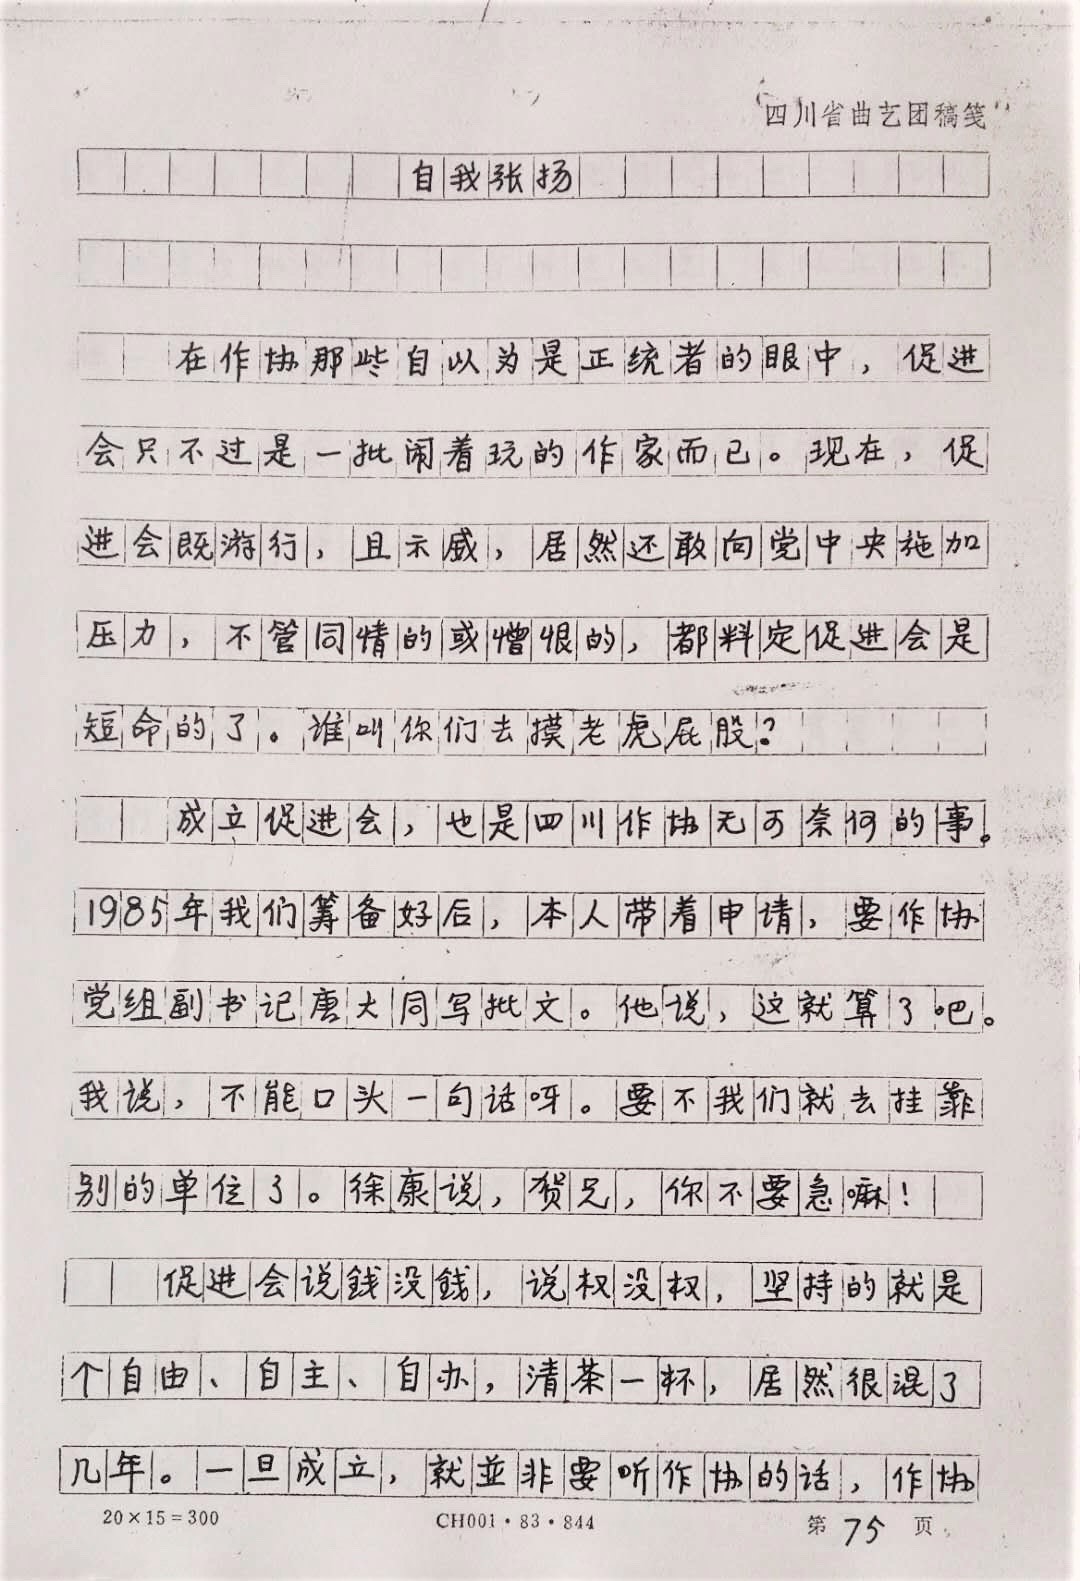 四川省曲艺团稿笺
自我张扬
在作协那些自以为是正统者的眼中，促进
会只不过是一批闹着玩的作家而已。现在，促
进会既游行，且示威，居然还敢向党中央施加
压力，不管同情的或憎恨的，都料定促进会是
短命的了。谁叫你们去摸老虎屁股？
成立促进会，也是四川作协无可奈何的事。
1985年我们筹备好后，本人带着申请，要作协
党组副书记唐大同写批文。他说，这就算了吧。
我说，不能口头一句话呀。要不我们就去挂靠
别的单位了。徐康说，贺兄，你不要急嘛！
促进会说錢没錢，说权没权，坚持的就是
个自由、自主、自办，清茶一杯，居然很混了
几年。一旦成立，就並非要听作协的话，作协
20×15=300
CH001·83·844
第75页